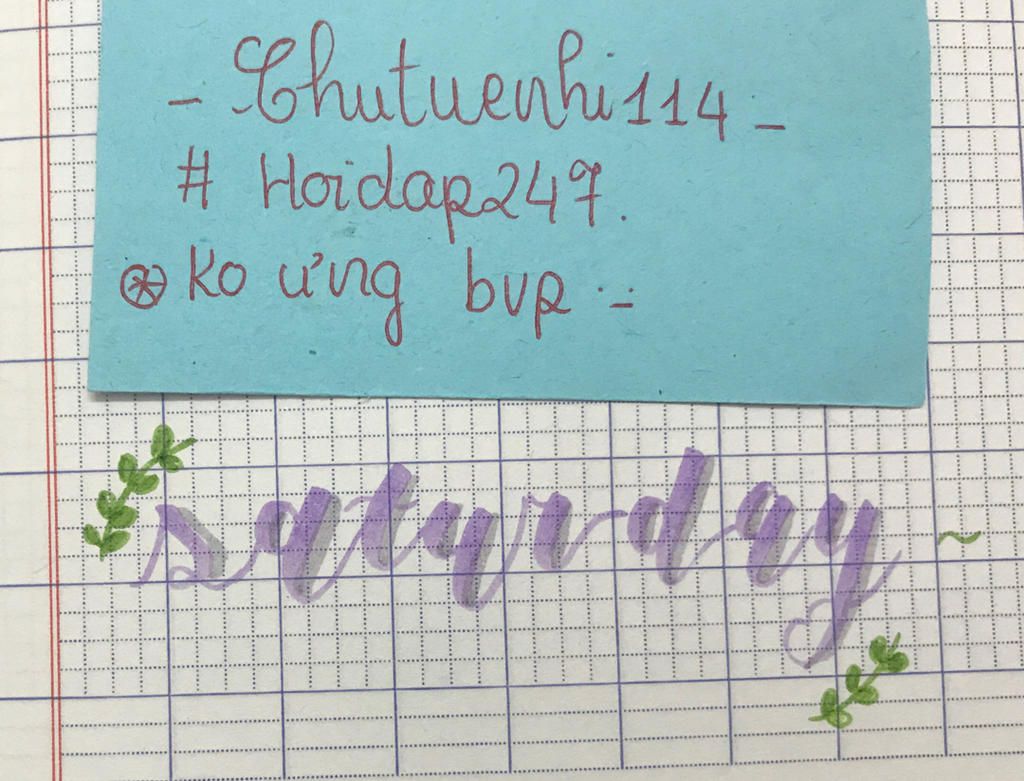 - Chutuenhi114 -
# Hoidap247.
ko ưng bvp :-
saturday ~